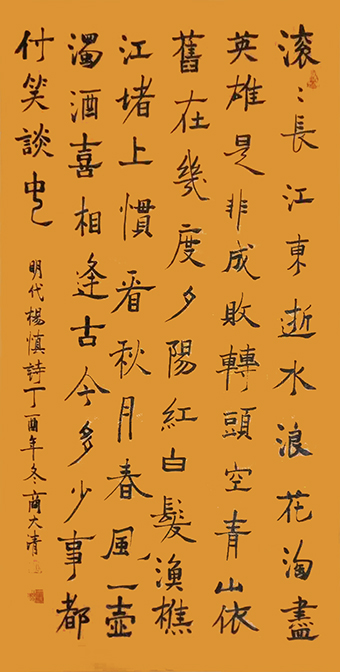 滚〻長江東逝水浪花淘盡
英雄是非成敗轉頭空青山依
舊在幾度夕陽紅白髮漁樵
江堵上慣看秋月春風一壺
濁酒喜相逢古今多少事都
付笑談
明代楊慎詩丁酉年冬商大清